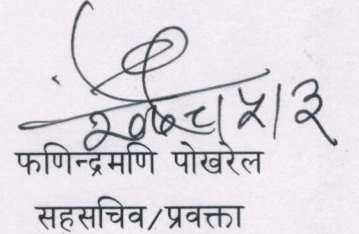 २०७८|५|३
फणिन्द्रमणि पोखरेल
सहसचिव/प्रवक्ता